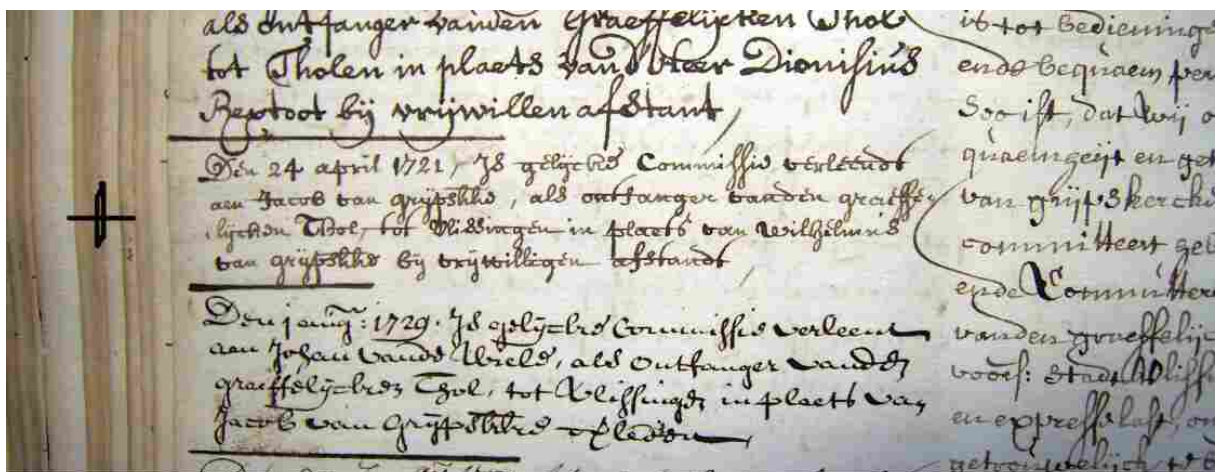 als ontfanger vanden Graeffelijcken Thol
tot Tholen in plaets vand heer Dionisius
bij vrijwillen afstant,
Den 24 april 1721, Is gelijcke Commissie verleendt
aen Jacob van grijpskke, als ontfanger vanden graeffe
lijcken Thol, tot Vlissingen in plaets van Wilhelmus
van grijpskke by vrijwilligen afstandt
Den 1729. Is gelijcke Commissie verleent
aen Johan vande Wiele, als Ontfanger vanden
graeffelijcken Thol, tot Vlissingen in plaets van
Jacob van Grijpskke
is tot bedieninge
ende bequaem per
Soo ist, dat wij o
en get
van grijpskercke
committeert geb
ende Committere
vanden graeffelijc
voors: Stadt Vlissi
en expresse last, om
getrouwelijck